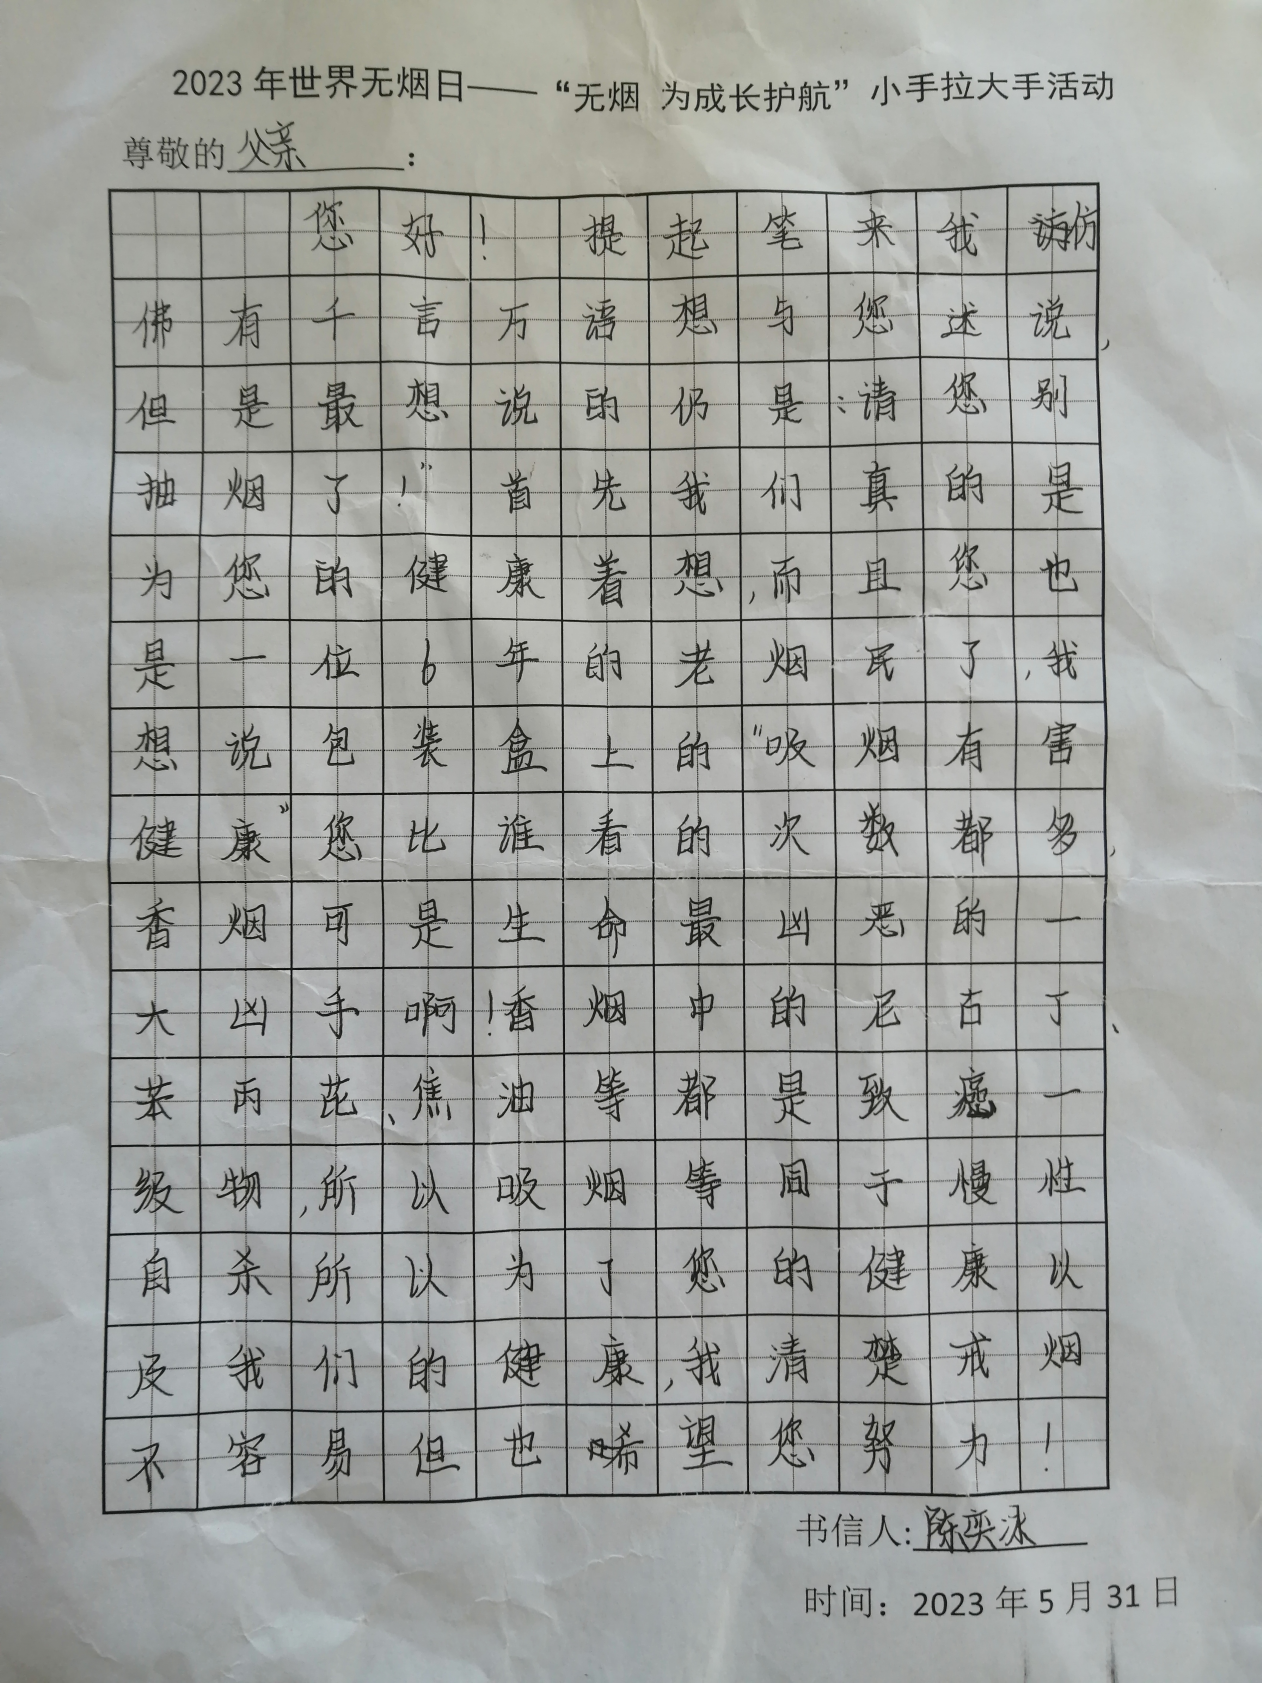 2023 年世界无烟日——“无烟 为成长护航”小手拉大手活动
尊敬的 父亲 ：
您好！提起笔来我仿
佛有千言万语想与您述说，
但是最想说的仍是：请您别
抽烟了！”首先我们真的是
为您的健康着想，而且您也
是一位6年的老烟民了，我
想说包装盒上的“吸烟有害
健康”您比谁看的次数都多，
香烟可是生命最凶恶的一
大凶手啊！香烟中的尼古丁、
苯丙芘、焦油等都是致癌一
级物，所以吸烟等同于慢性
自杀所以为了您的健康以
及我们的健康，我清楚戒烟
不容易但也希望您努力！
书信人：陈奕冰
时间：2023 年 5 月 31 日